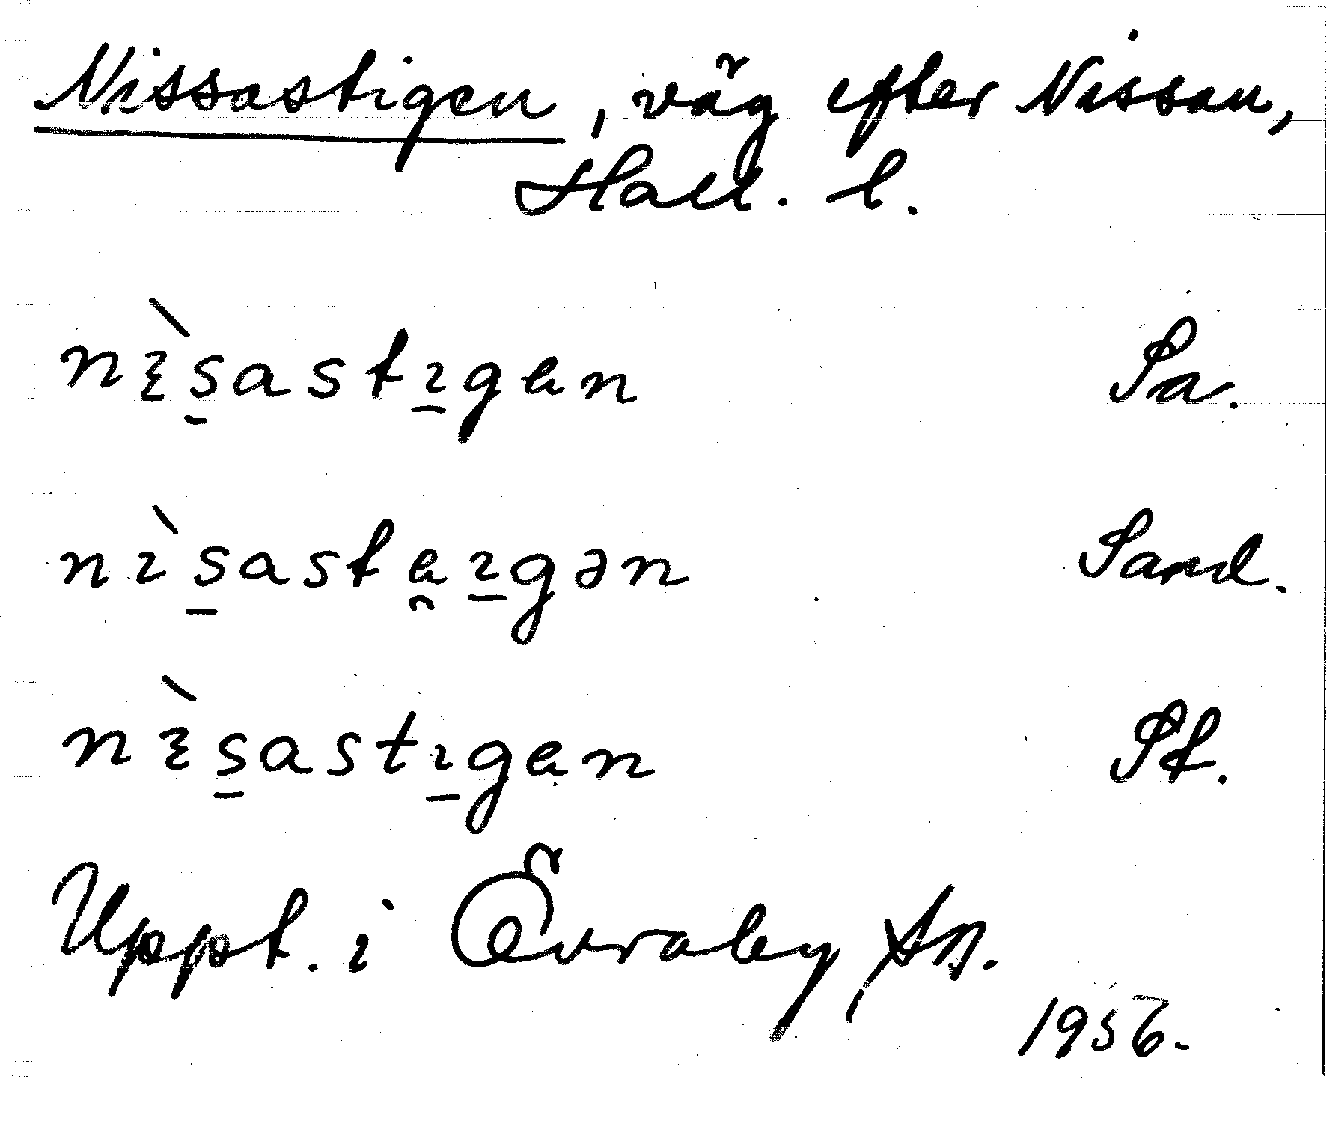 Nissastigen, väg efter Nissan,
Hall. l.
nìsastigen Sa.
nìsasteigən Sand.
nìsastigen St.
Uppt. i Övraby,
1956.